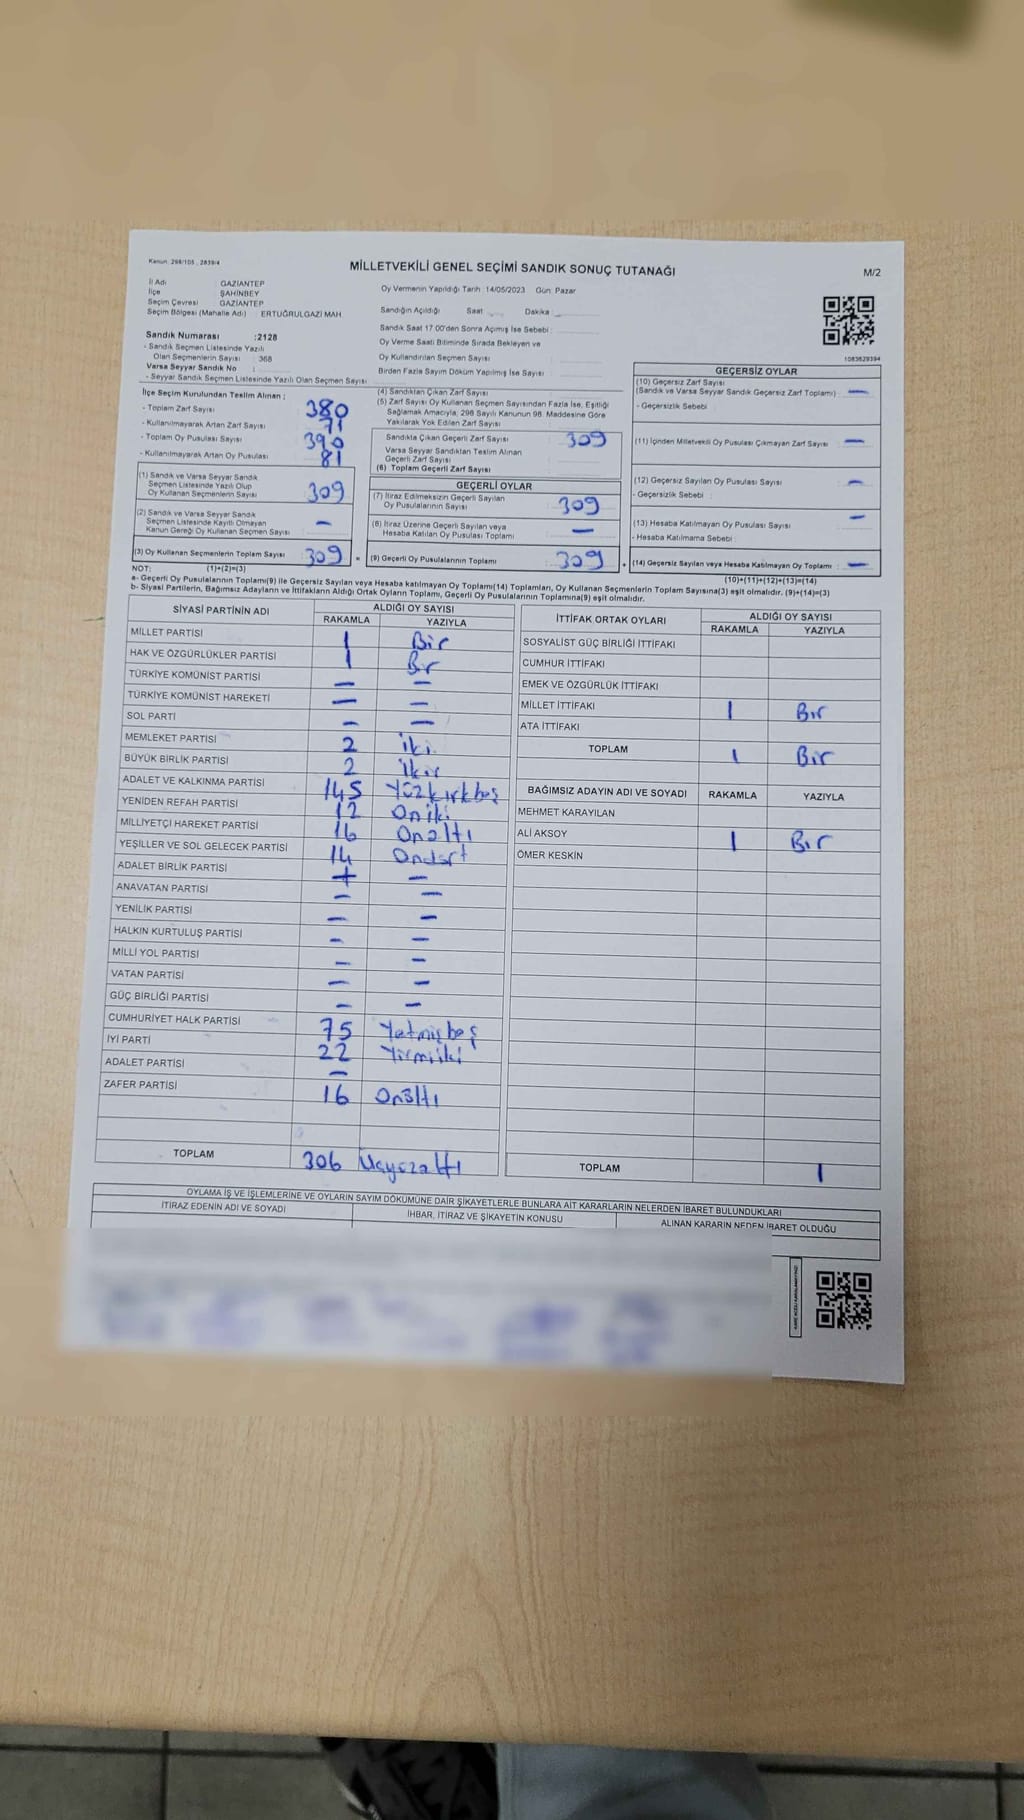 Kanun: 298/105 , 2839/4
MİLLETVEKİLİ GENEL SEÇİMİ SANDIK SONUÇ TUTANAĞI
M/2
İl Adı : GAZİANTEP
İlçe ŞAHİNBEY
Seçim Çevresi GAZİANTEP
Seçim Bölgesi (Mahalle Adı) : ERTUĞRULGAZİ MAH.
Oy Vermenin Yapıldığı Tarih :14/05/2023 Gün: Pazar
Sandığın Açıldığı Saat Dakika :
Sandık Saat 17.00'den Sonra Açımış İse Sebebi :
Oy Verme Saati Bitiminde Sırada Bekleyen ve
Oy Kullandırılan Seçmen Sayısı
Birden Fazla Sayım Döküm Yapılmış İse Sayısı :
1083629394
Sandık Numarası :2128
- Sandık Seçmen Listesinde Yazılı
Olan Seçmenlerin Sayısı : 368
Varsa Seyyar Sandık No :
- Seyyar Sandık Seçmen Listesinde Yazılı Olan Seçmen Sayısı
İlçe Seçim Kurulundan Teslim Alınan ;
- Toplam Zarf Sayısı 380
- Kullanılmayarak Artan Zarf Sayısı 71
- Toplam Oy Pusulası Sayısı 390
- Kullanılmayarak Artan Oy Pusulası 81
(1) Sandık ve Varsa Seyyar Sandık
Seçmen Listesinde Yazılı Olup
Oy Kullanan Seçmenlerin Sayısı 309
(2) Sandık ve Varsa Seyyar Sandık
Seçmen Listesinde Kayıtlı Olmayan
Kanun Gereği Oy Kullanan Seçmen Sayısı : –
(3) Oy Kullanan Seçmenlerin Toplam Sayısı 309 =
(4) Sandıktan Çıkan Zarf Sayısı
(5) Zarf Sayısı Oy Kullanan Seçmen Sayısından Fazla İse, Eşitliği
Sağlamak Amacıyla, 298 Sayılı Kanunun 98. Maddesine Göre
Yakılarak Yok Edilen Zarf Sayısı
Sandıkta Çıkan Geçerli Zarf Sayısı 309
Varsa Seyyar Sandıktan Teslim Alınan
Geçerli Zarf Sayısı
(6) Toplam Geçerli Zarf Sayısı
GEÇERLİ OYLAR
(7) İtiraz Edilmeksizin Geçerli Sayılan
Oy Pusulalarının Sayısı 309
(8) İtiraz Üzerine Geçerli Sayılan veya
Hesaba Katılan Oy Pusulası Toplamı –
(9) Geçerli Oy Pusulalarının Toplamı : 309 +
GEÇERSİZ OYLAR
(10) Geçersiz Zarf Sayısı
(Sandık ve Varsa Seyyar Sandık Geçersiz Zarf Toplamı) : –
- Geçersizlik Sebebi :
(11) İçinden Milletvekili Oy Pusulası Çıkmayan Zarf Sayısı –
(12) Geçersiz Sayılan Oy Pusulası Sayısı –
- Geçersizlik Sebebi :
(13) Hesaba Katılmayan Oy Pusulası Sayısı –
- Hesaba Katılmama Sebebi :
(14) Geçersiz Sayılan veya Hesaba Katılmayan Oy Toplamı : –
NOT: (1)+(2)=(3)
(10)+(11)+(12)+(13)=(14)
a- Geçerli Oy Pusulalarının Toplamı(9) ile Geçersiz Sayılan veya Hesaba katılmayan Oy Toplamı(14) Toplamları, Oy Kullanan Seçmenlerin Toplam Sayısına(3) eşit olmalıdır. (9)+(14)=(3)
b- Siyasi Partilerin, Bağımsız Adayların ve İttifakların Aldığı Ortak Oyların Toplamı, Geçerli Oy Pusulalarının Toplamına(9) eşit olmalıdır.
SİYASİ PARTİNİN ADI ALDIĞI OY SAYISI
RAKAMLA YAZIYLA
MİLLET PARTİSİ 1 Bir
HAK VE ÖZGÜRLÜKLER PARTİSİ 1 Bir
TÜRKİYE KOMÜNİST PARTİSİ – –
TÜRKİYE KOMÜNİST HAREKETİ – –
SOL PARTİ – –
MEMLEKET PARTİSİ 2 iki
BÜYÜK BİRLİK PARTİSİ 2
ADALET VE KALKINMA PARTİSİ 145 Yüzkırkbeş
YENİDEN REFAH PARTİSİ 12 Oniki
MİLLİYETÇİ HAREKET PARTİSİ 16 Onaltı
YEŞİLLER VE SOL GELECEK PARTİSİ 14 Ondört
ADALET BİRLİK PARTİSİ –
ANAVATAN PARTİSİ – –
YENİLİK PARTİSİ – –
HALKIN KURTULUŞ PARTİSİ – –
MİLLİ YOL PARTİSİ – –
VATAN PARTİSİ – –
GÜÇ BİRLİĞİ PARTİSİ – –
CUMHURİYET HALK PARTİSİ 75 Yetmişbeş
İYİ PARTİ 22 Yirmiiki
ADALET PARTİSİ –
ZAFER PARTİSİ 16 Onaltı
TOPLAM 306 Üçyüzaltı
İTTİFAK ORTAK OYLARI ALDIĞI OY SAYISI
RAKAMLA YAZIYLA
SOSYALİST GÜÇ BİRLİĞİ İTTİFAKI
CUMHUR İTTİFAKI
EMEK VE ÖZGÜRLÜK İTTİFAKI
MİLLET İTTİFAKI 1 Bir
ATA İTTİFAKI
TOPLAM 1 Bir
BAĞIMSIZ ADAYIN ADI VE SOYADI RAKAMLA YAZIYLA
MEHMET KARAYILAN
ALİ AKSOY 1 Bir
ÖMER KESKİN
TOPLAM 1
OYLAMA İŞ VE İŞLEMLERİNE VE OYLARIN SAYIM DÖKÜMÜNE DAİR ŞİKAYETLERLE BUNLARA AİT KARARLARIN NELERDEN İBARET BULUNDUKLARI
İTİRAZ EDENİN ADI VE SOYADI İHBAR, İTİRAZ VE ŞİKAYETİN KONUSU ALINAN KARARIN NEDEN İBARET OLDUĞU